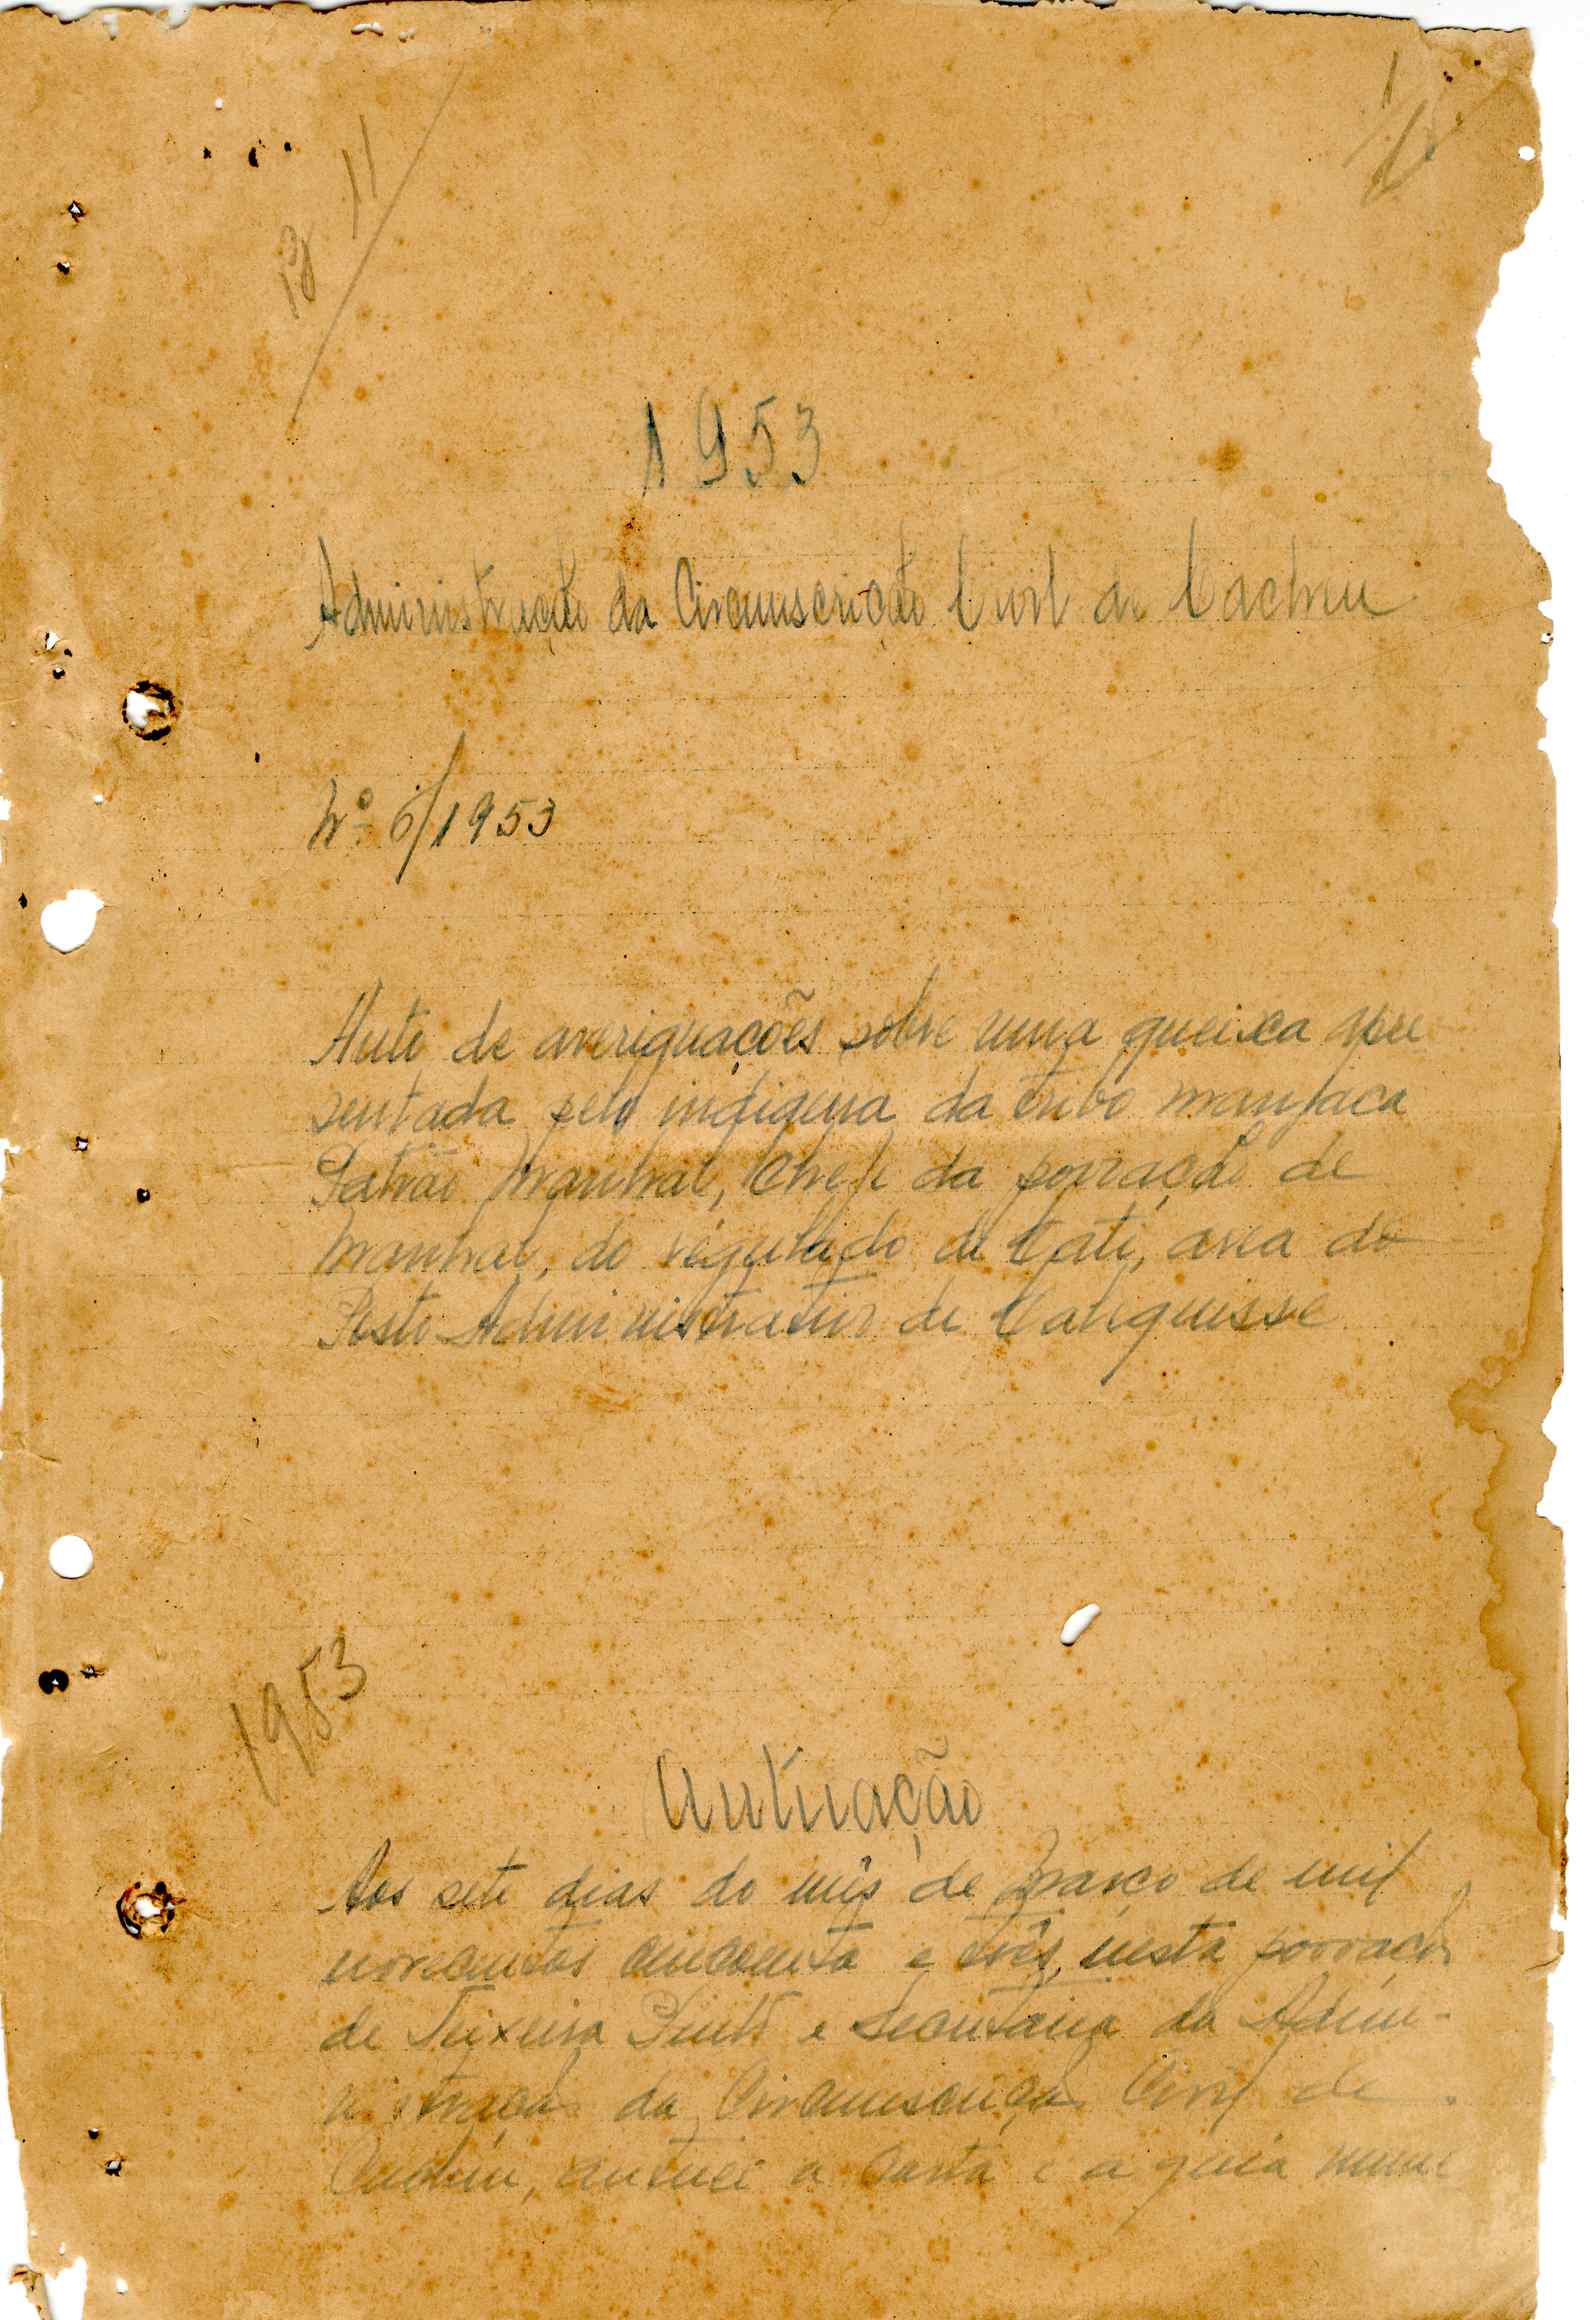 1953
Administração da Circunscrição Civil de Cacheu
Nº 6/1953
Auto de averiguações sobre uma queixa apre
sentada pelo indígena da tribo manjaca
Patrão, Chefe da povoação de
do regulado de Cati, area do
Posto Administrativo de Caliquisse
1953
Autuação
Aos sete dias do mês de Março de mil
novecentos cincoenta e três, nesta povoação
de Teixeira Pinto e Secretaria da Admi-
nistração da Circunscrição Civil de
Cacheu, autuei a carta e a guia nume